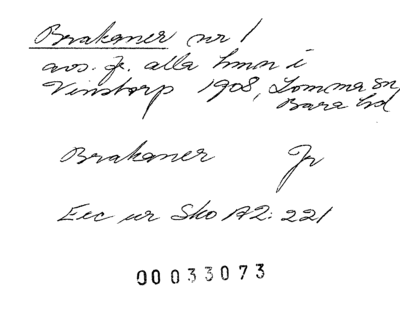 Brakaner nr 1
avs. fr. alla hmn i
Vinstorp 1908, Lomma sn,
Bara hd
Brakaner Jr
Exc ur Sko A2: 221
00033073